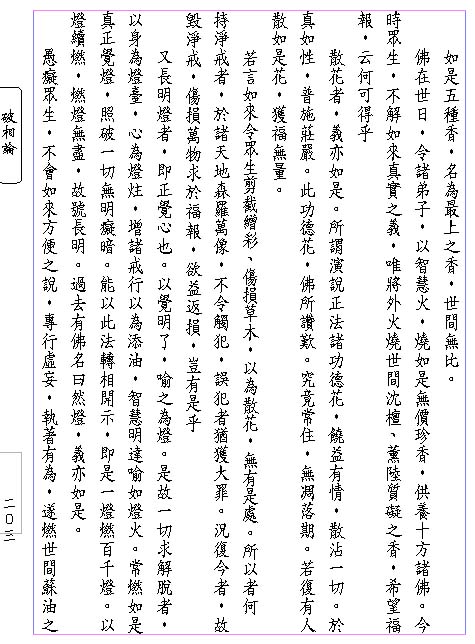 如是五種香，名為最上之香，世間無比。
佛在世日，令諸弟子，以智慧火，燒如是無價珍香，供養十方諸佛。今
時眾生，不解如來真實之義，唯將外火燒世間沈檀、薰陸質礙之香，希望福
報，云何可得乎
散花者，義亦如是。所謂演說正法諸功德花，饒益有情，散沾一切。於
真如性，普施莊嚴。此功德花，佛所讚歎。究竟常住，無凋落期。若復有人
散如是花，獲福無量。
若言如來令眾生剪截繒彩、傷損草木，以為散花，無有是處。所以者何
持淨戒者，於諸天地森羅萬像，不令觸犯，誤犯者猶獲大罪。況復今者，故
毀淨戒，傷損萬物求於福報，欲益返損，豈有是乎
又長明燈者，即正覺心也。以覺明了，喻之為燈。是故一切求解脫者，
以身為燈臺，心為燈炷，增諸戒行以為添油，智慧明達喻如燈火。常燃如是
真正覺燈，照破一切無明癡暗。能以此法轉相開示，即是一燈燃百千燈。以
燈續燃，燃燈無盡，故號長明。過去有佛名曰然燈，義亦如是。
愚癡眾生，不會如來方便之說，專行虛妄，執著有為，遂燃世間蘇油之
破相論
二〇三